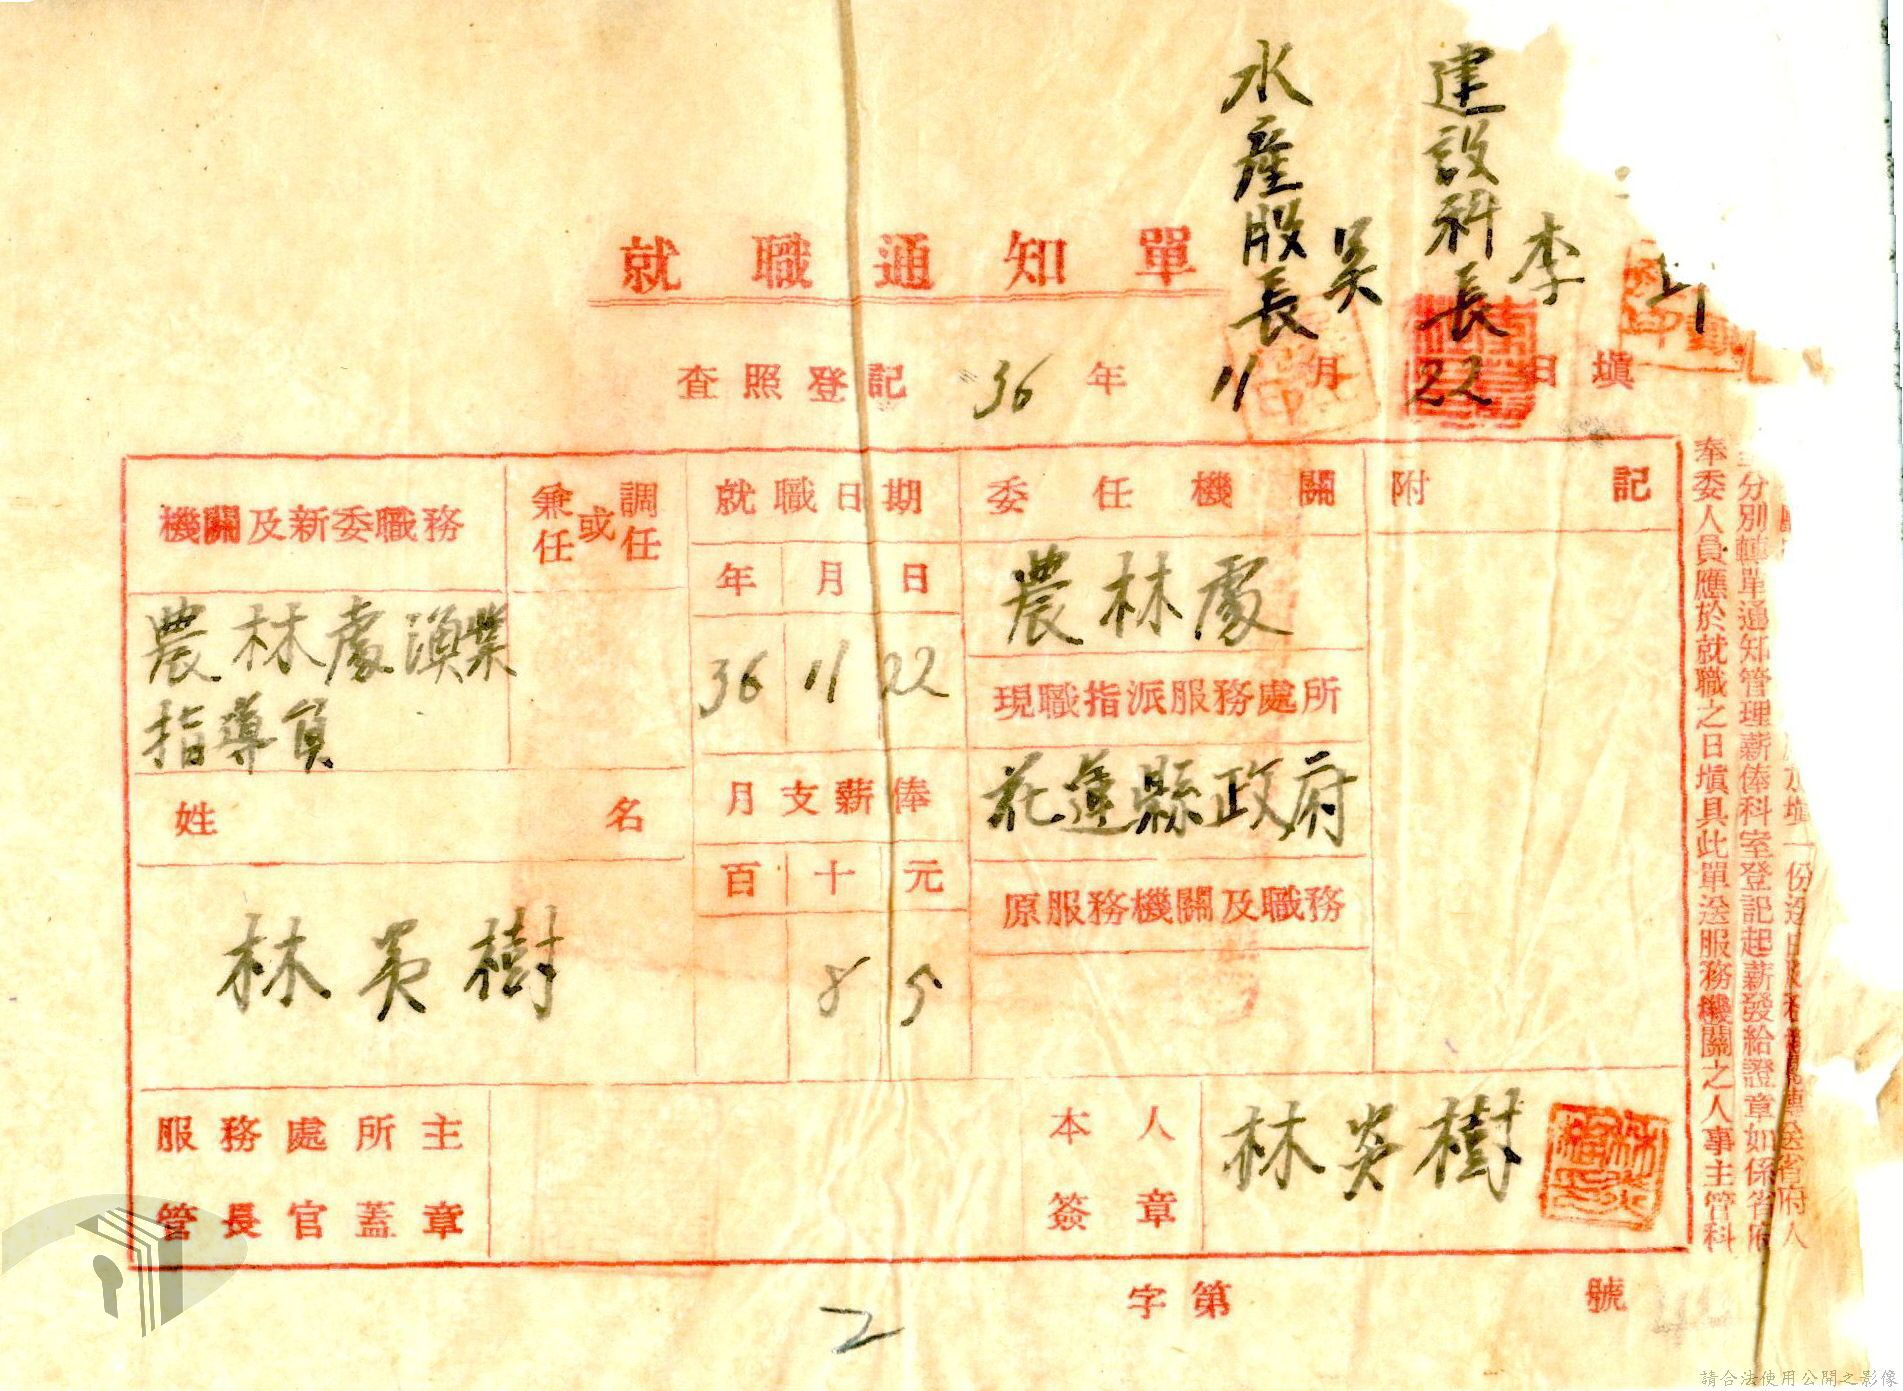 水產股長 吳
建設科長 李
就職通知單
查照登記 36年11月22日填
機關及新委職務
兼任或調任
就職日期
委任機關
附記
年 月 日
農林處漁業
指導員
36 11 22
農林處
現職指派服務處所
花蓮縣政府
姓名
月支薪俸
百 十 元
原服務機關及職務
林炎樹
8 5
服務處所主
管長官蓋章
本人
簽章
林炎樹
字第 號
2
奉委人員應於就職之日填具此單送服務機關之人事主管科
分別轉單通知管理薪俸科室登記起薪發給證章如係省府
填一份送
送省府人
請合法使用公開之影像